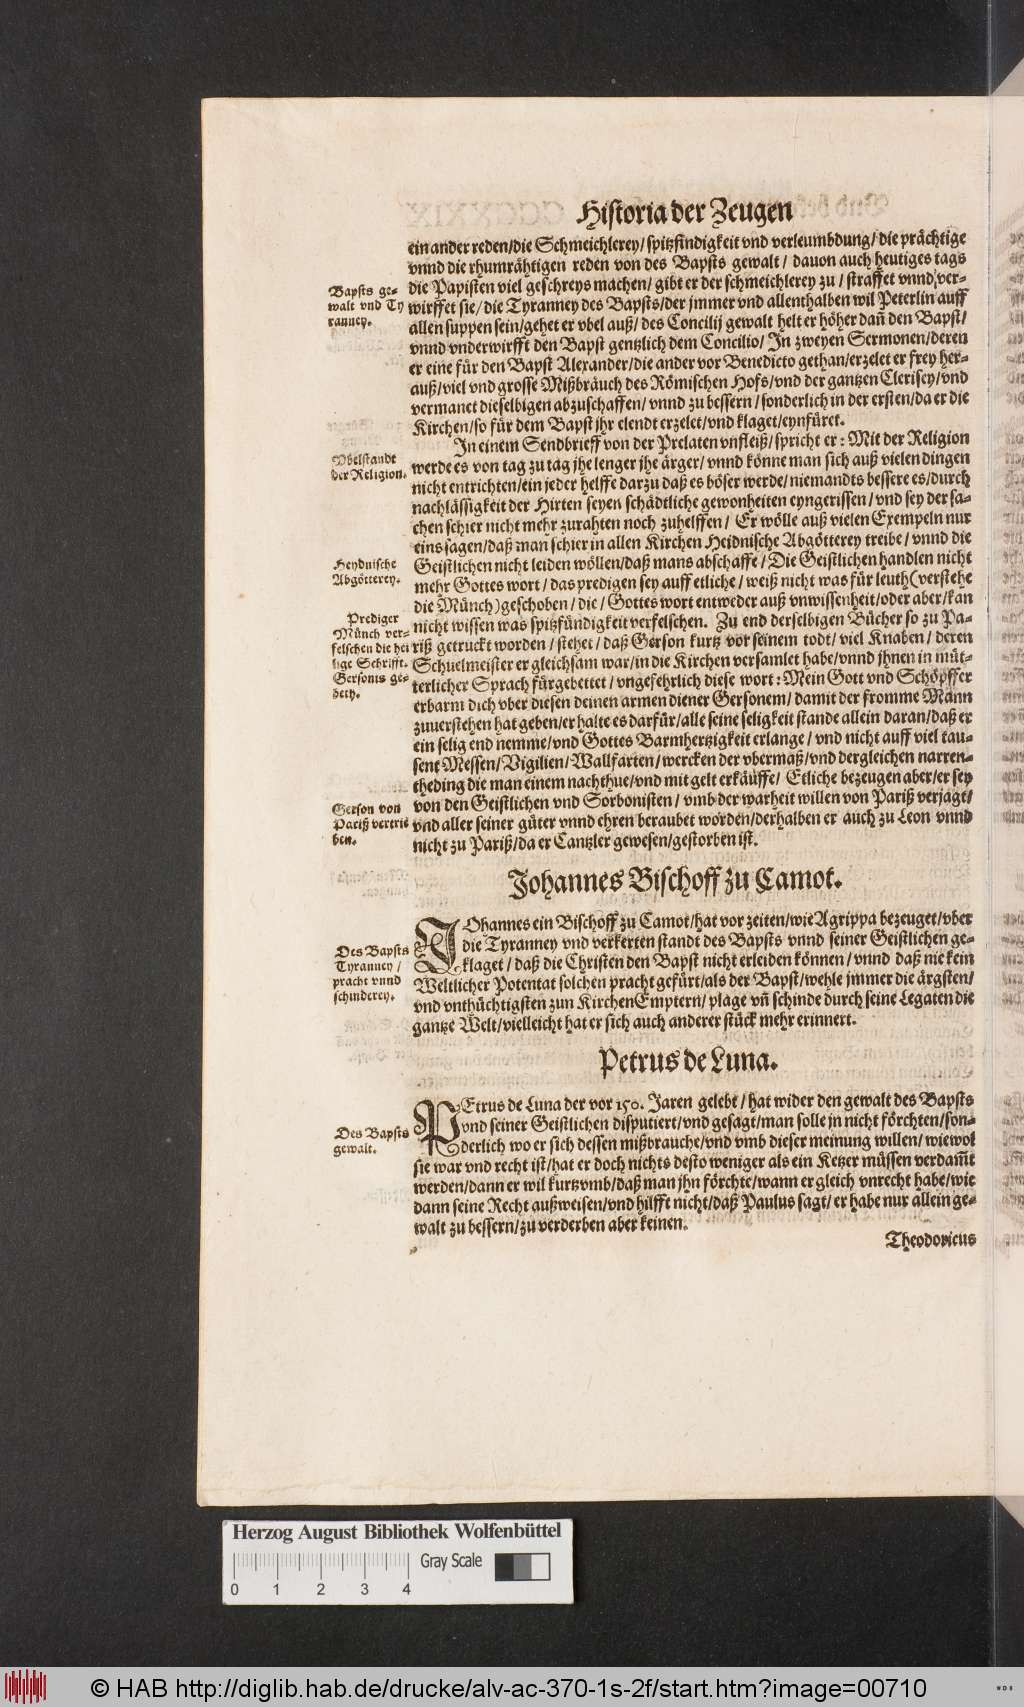 Historia der Zeugen
ein ander reden/die Schmeichlerey/spitzfindigkeit vnd verleumbdung/die prächtige
vnnd die rhumrähtigen reden von des Bapsts gewalt/ dauon auch heutiges tags
Bapsts ge-
walt vnd Ty
ranney.
die Papisten viel geschreys machen/ gibt er der schmeichlerey zu/ straffet vnnd ver-
wirffet sie/die Tyranney des Bapsts/der jmmer vnd allenthalben wil Peterlin auff
allen suppen sein/gehet er vbel auß/des Concilij gewalt helt er höher dañ den Bapst/
vnnd vnderwirfft den Bapst gentzlich dem Concilio/ In zweyen Sermonen/deren
er eine für den Bapst Alexander/die ander vor Benedicto gethan/erzelet er frey her-
auß/viel vnd grosse Mißbräuch des Römischen Hofs/vnd der gantzen Clerisey/vnd
vermanet dieselbigen abzuschaffen/ vnnd zu bessern/ sonderlich in der ersten/da er die
Kirchen/so für dem Bapst jhr elendt erzelet/vnd klaget/eynfüret.
In einem Sendbrieff von der Prelaten vnfleiß/spricht er: Mit der Religion
Vbelstandt
der Religion.
werde es von tag zu tag jhe lenger jhe ärger/ vnnd könne man sich auß vielen dingen
nicht entrichten/ein jeder helffe darzu daß es böser werde/niemandts bessere es/durch
nachlässigkeit der Hirten seyen schädtliche gewonheiten eyngerissen/ vnd sey der sa-
chen schier nicht mehr zurahten noch zuhelffen/ Er wölle auß vielen Exempeln nur
eins sagen/daß man schier in allen Kirchen Heidnische Abgötterey treibe/ vnnd die
Heydnische
Abgötterey.
Geistlichen nicht leiden wöllen/daß mans abschaffe/ Die Geistlichen handlen nicht
mehr Gottes wort/ das predigen sey auff etliche/ weiß nicht was für leuth(verstehe
die Münch)geschoben/ die/ Gottes wort entweder auß vnwissenheit/oder aber/kan
Prediger
Münch ver-
felschen die hei
lige Schrifft.
Gersonis ge-
bett.
nicht wissen was spitzfündigkeit verfelschen. Zu end derselbigen Bücher so zu Pa-
riß getruckt worden/ stehet/ daß Gerson kurtz vor seinem todt/ viel Knaben/ deren
Schuelmeister er gleichsam war/in die Kirchen versamlet habe/vnnd jhnen in müt-
terlicher Sprach fürgebettet/ vngefehrlich diese wort: Mein Gott vnd Schöpffer
erbarm dich vber diesen deinen armen diener Gersonem/ damit der fromme Mann
zuuerstehen hat geben/er halte es darfür/alle seine seligkeit stande allein daran/daß er
ein selig end nemme/vnd Gottes Barmhertzigkeit erlange/ vnd nicht auff viel tau-
sent Messen/ Vigilien/ Wallfarten/ wercken der vbermaß/vnd dergleichen narren-
theding die man einem nachthue/vnd mit gelt erkäuffe/ Etliche bezeugen aber/er sey
Gerson von
Pariß vertrie
ben.
von den Geistlichen vnd Sorbonisten/ vmb der warheit willen von Pariß verjagt/
vnd aller seiner güter vnnd ehren beraubet worden/derhalben er auch zu Leon vnnd
nicht zu Pariß/da er Cantzler gewesen/gestorben ist.
Johannes Bischoff zu Camot.
JOhannes ein Bischoff zu Camot/hat vor zeiten/wie Agrippa bezeuget/vber
Des Bapsts
Tyranney/
pracht vnnd
schinderey.
die Tyranney vnd verkerten standt des Bapsts vnnd seiner Geistlichen ge-
klaget/ daß die Christen den Bapst nicht erleiden können/ vnnd daß nie kein
Weltlicher Potentat solchen pracht gefürt/als der Bapst/wehle jmmer die ärgsten/
vnd vnthüchtigsten zun KirchenEmptern/ plage vñ schinde durch seine Legaten die
gantze Welt/vielleicht hat er sich auch anderer stück mehr erinnert.
Petrus de Luna.
PEtrus de Luna der vor 150. Jaren gelebt/ hat wider den gewalt des Bapsts
Des Bapsts
gewalt.
vnd seiner Geistlichen disputiert/vnd gesagt/man solle jn nicht förchten/son-
derlich wo er sich dessen mißbrauche/vnd vmb dieser meinung willen/ wiewol
sie war vnd recht ist/hat er doch nichts desto weniger als ein Ketzer müssen verdam̄t
werden/dann er wil kurtzvmb/daß man jhn förchte/wann er gleich vnrecht habe/wie
dann seine Recht außweisen/vnd hilfft nicht/daß Paulus sagt/ er habe nur allein ge-
walt zu bessern/zu verderben aber keinen.
Theodoricus
Herzog August Bibliothek Wolfenbüttel
Gray Scale
0 1 2 3 4
© HAB http://diglib.hab.de/drucke/alv-ac-370-1s-2f/start.htm?image=00710